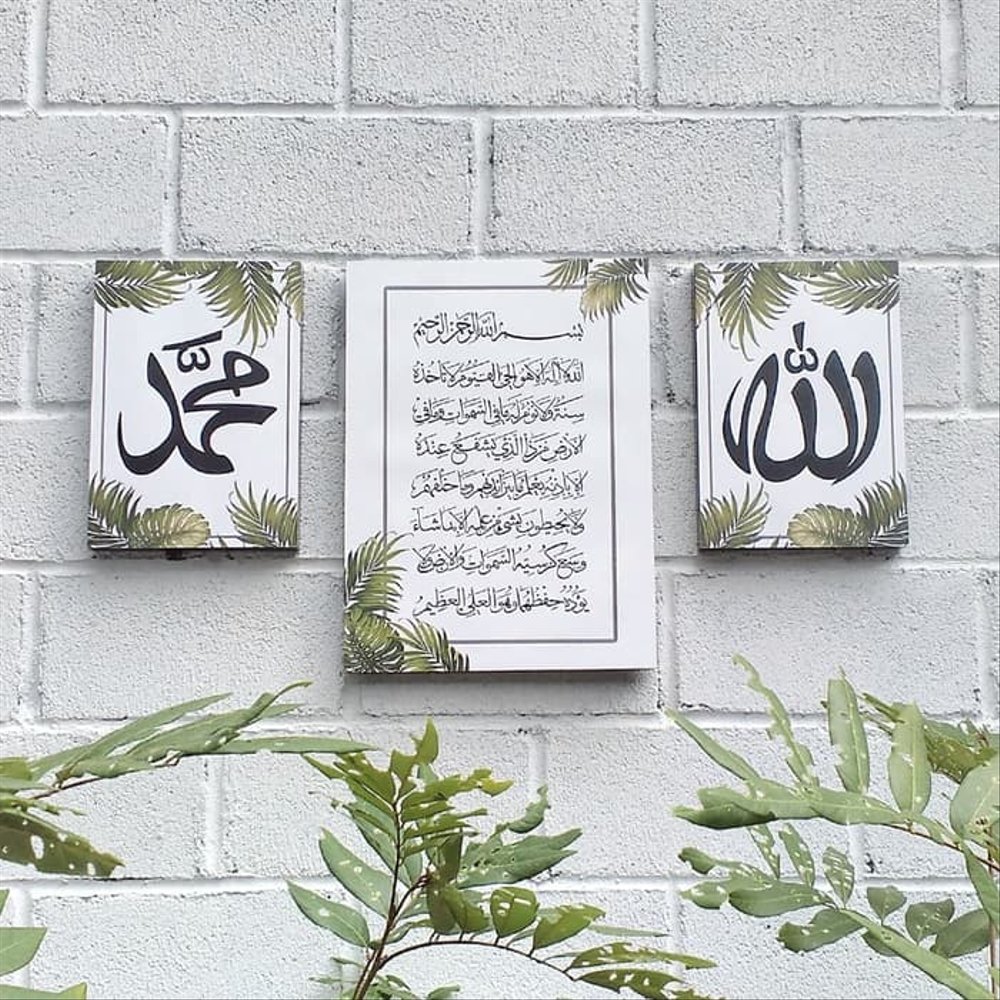 الله
بسم الله الرحمن الرحيم
الله لا إله إلا هو الحي القيوم لا تأخذه
سنة ولا نوم له ما في السموات وما في
الأرض من ذا الذي يشفع عنده
إلا بإذنه يعلم ما بين أيديهم وما خلفهم
ولا يحيطون بشيء من علمه إلا بما شاء
وسع كرسيه السموات والأرض ولا
يؤده حفظهما وهو العلي العظيم
محمد